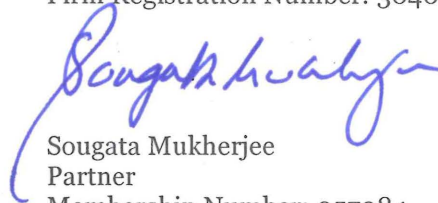 Firm Registration Number: 3040
Sougata Mukherjee
Sougata Mukherjee
Partner
Membership Number: